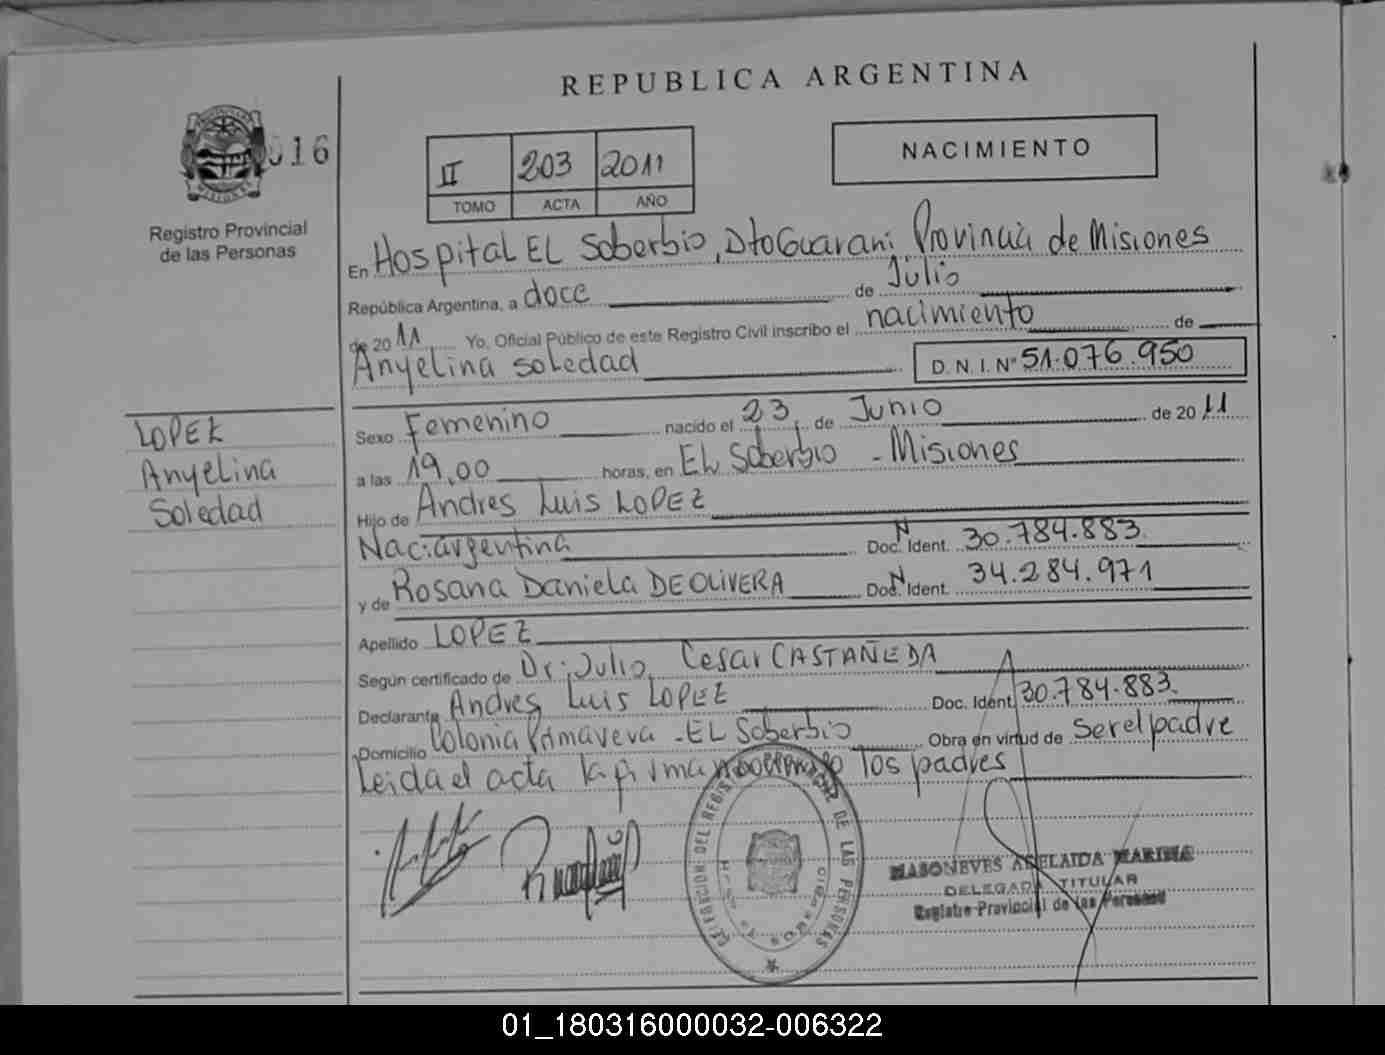 REPUBLICA ARGENTINA
016
Registro Provincial
de las Personas
II 203 2011
TOMO ACTA AÑO
NACIMIENTO
En Hospital EL Soberbio, Dto Guarani Provincia de Misiones
República Argentina, a doce de Julio
de 20 11 Yo, Oficial Público de este Registro Civil inscribo el nacimiento de
Anyelina Soledad D.N.I. Nº 51.076.950
LOPEZ
Anyelina
Soledad
Sexo Femenino nacido el 23 de Junio de 20 11
a las 19,00 horas, en EL Soberbio - Misiones
Hijo de Andres Luis LOPEZ
Nac: argentina Doc. Ident. 30.784.883
y de Rosana Daniela DE OLIVERA Doc. Ident. 34.284.971
Apellido LOPEZ
Según certificado de Dr: Julio Cesar CASTAÑEDA
Declarante Andres Luis LOPEZ Doc. Ident. 30.784.883
Domicilio Colonia Primavera - EL Soberbio Obra en virtud de Ser el padre
Leida el acta la firman los padres
DEL REGISTRO DE LAS PERSONAS
MASONEVES ADELAIDA MARINA
DELEGADA TITULAR
Registro Provincial de las Personas
01_180316000032-006322